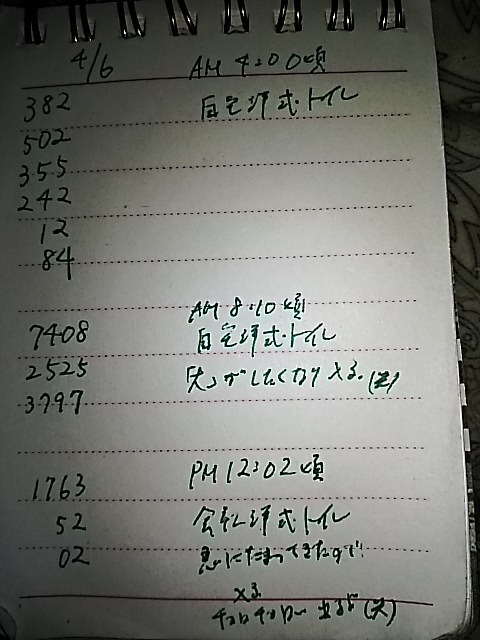 4/6 AM 4:00頃
382 自宅洋式トイレ
502
355
242
12
84
AM 8:10頃
7408 自宅洋式トイレ
2525 がしたくなり する。
3797
PM 12:02頃
1763
52 会社洋式トイレ
02 急にたまってきたので
する
チョロチョロ 出るが (大)